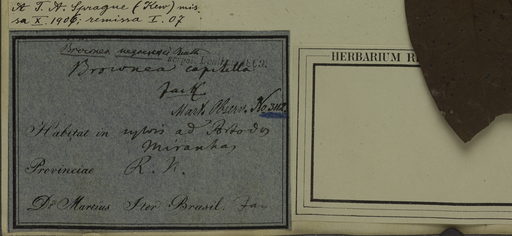 A T. A. Sprague (Kew) mis-
sa X. 1906; remissa I. 07
Brownea
Brownea capitella
Jack.
Mart. Observ. No 3112
Habitat in sylvis ad Porto dos
Miranhas
Provinciae R. N.
Dr Martius Iter Brasil.
HERBARIUM R